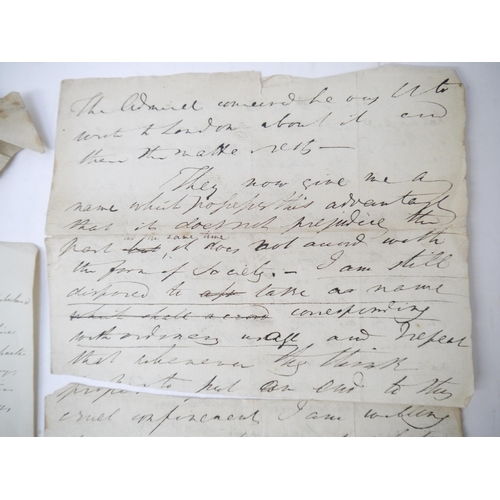 The Admiral conceived he was to
write to London about it and
there the matter rests —
They now give me a
name which possesses this advantage
that it does not prejudice the
past but at the same time, it does not accord with
the form of Society. — I am still
disposed to take as name
which shall accord corresponding
with ordinary usage and I repeat
that whenever they think
proper to put an end to this
cruel confinement I am willing